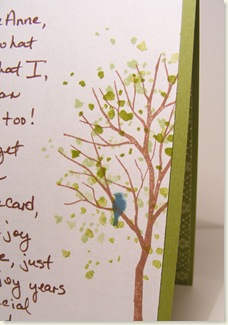 e Anne,
what
hat I,
an
too!
get
card,
joy
e, just
joy years
ecial